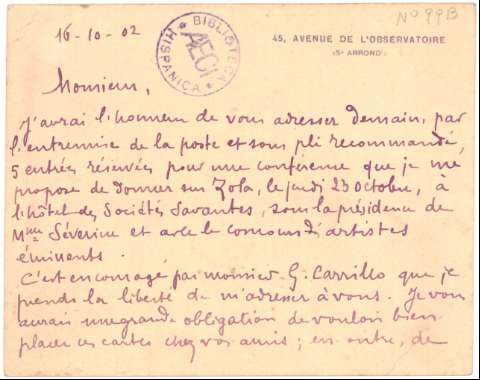 Nº 99B
16-10-02
BIBLIOTECA HISPANICA
AECI
45, AVENUE DE L'OBSERVATOIRE
(5e ARRONDt)
Monsieur,
J'aurai l'honneur de vous adresser demain, par
l'entremise de la poste et sous pli recommandé,
5 entrées réservées pour une conférence que je me
propose de donner sur Zola, le jeudi 23 Octobre, à
l'hôtel des Sociétés Savantes, sous la présidence de
Mme Séverine et avec le concours d'artistes
éminents.
C'est encouragé par monsieur G. Carrillo que je
prends la liberté de m'adresser à vous. Je vous
aurais une grande obligation de vouloir bien
placer ces cartes chez vos amis ; en outre, de